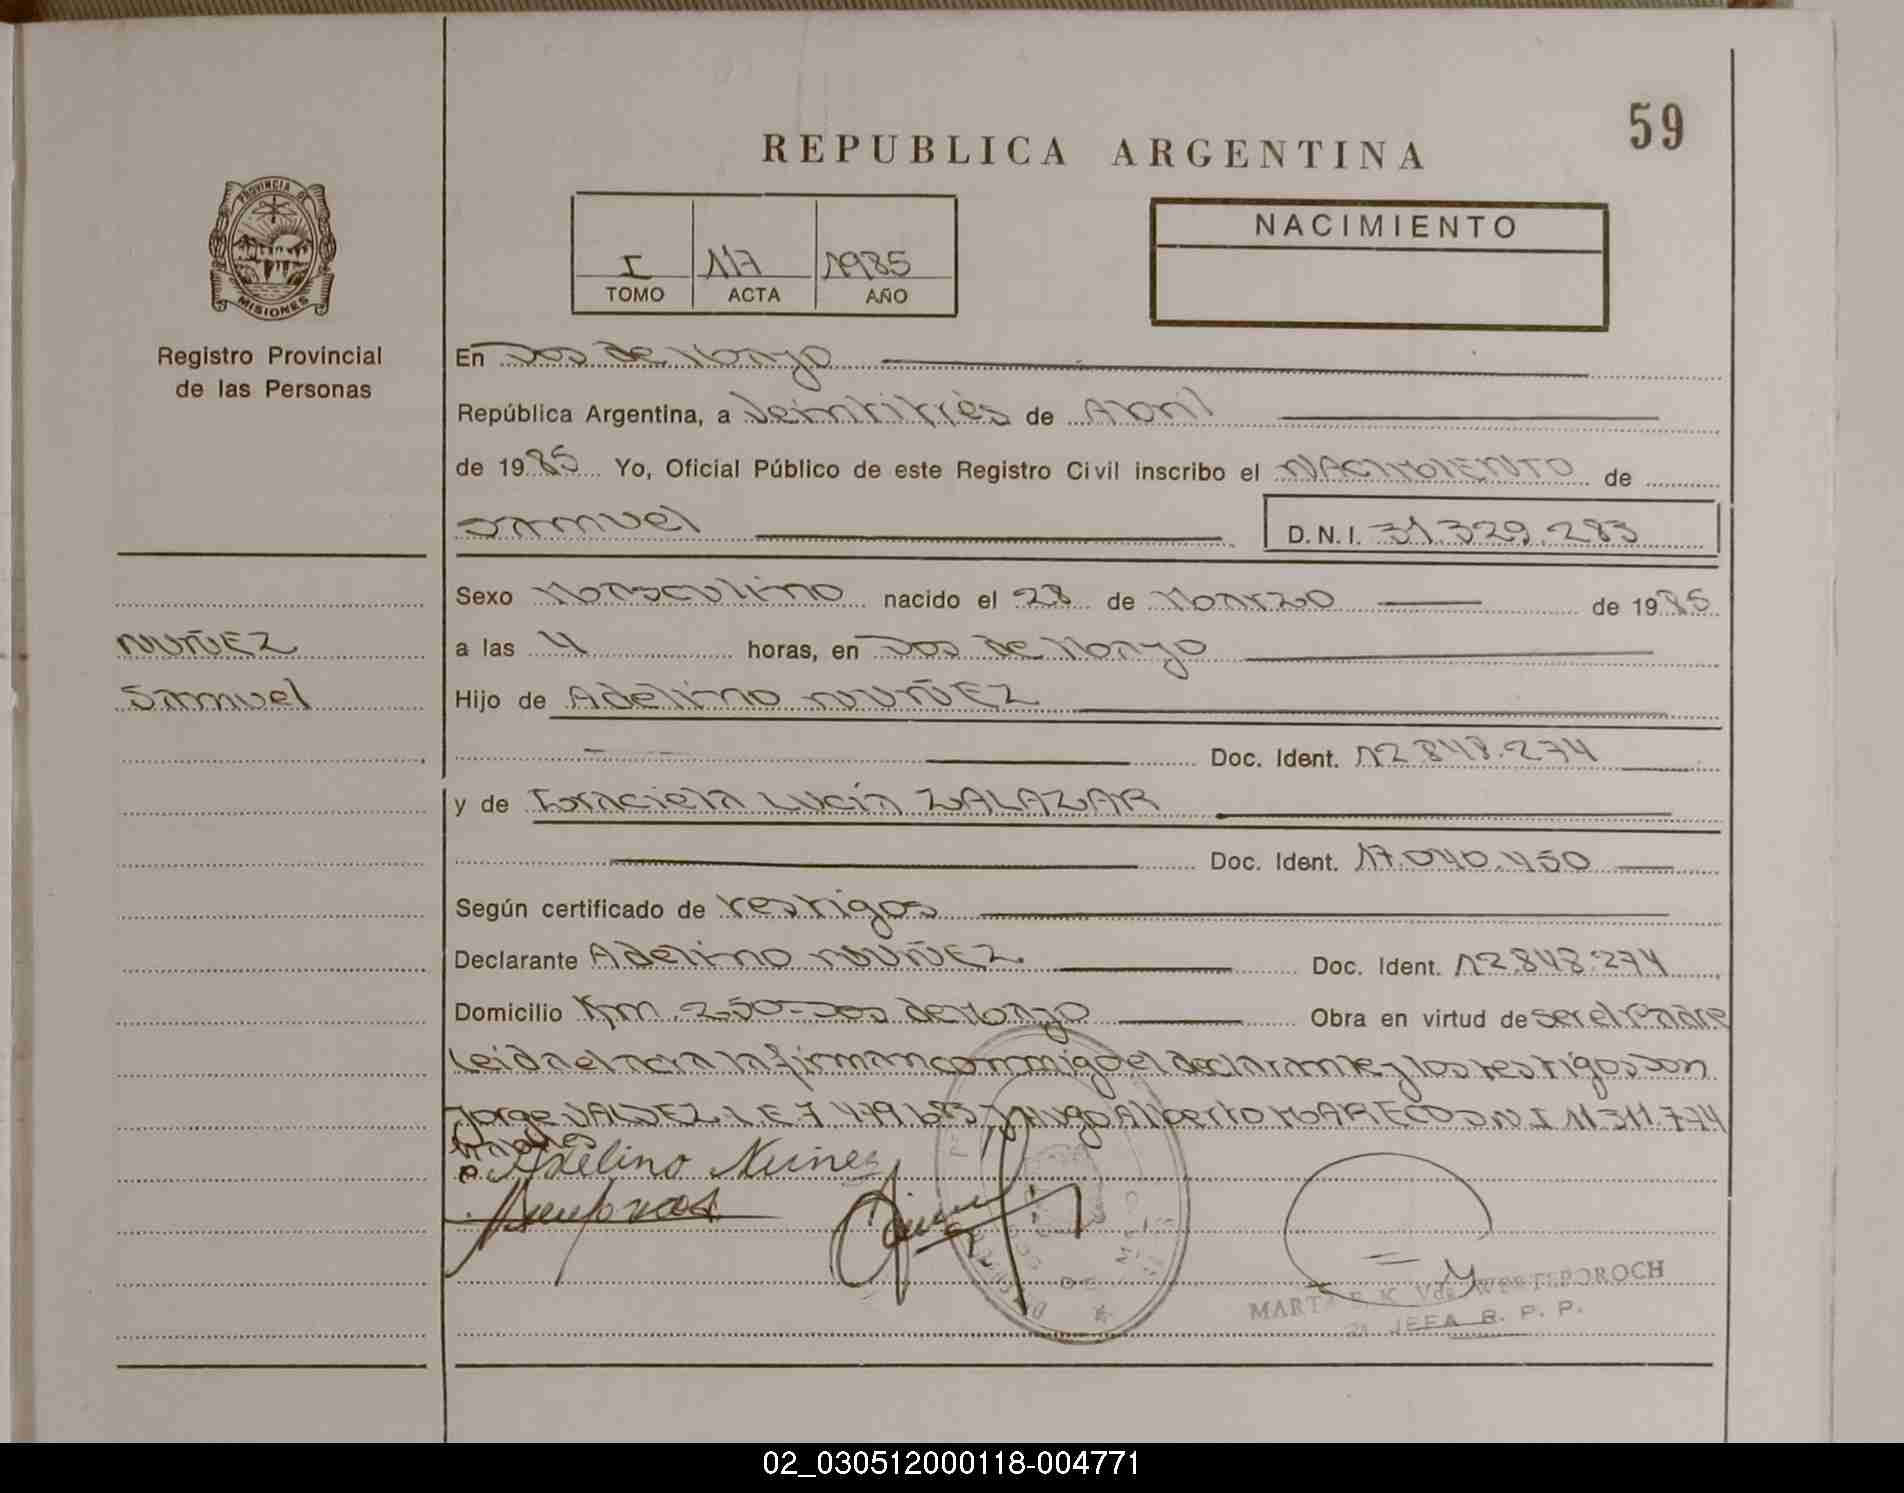 59
REPUBLICA ARGENTINA
PROVINCIA DE
MISIONES
Registro Provincial
de las Personas
I 117 1985
TOMO ACTA AÑO
NACIMIENTO
En Dos de Mayo
República Argentina, a Veintitrés de Abril
de 1985 Yo, Oficial Público de este Registro Civil inscribo el NACIMIENTO de
Samuel D.N.I. 31.329.283
NUÑEZ
Samuel
Sexo Masculino nacido el 28 de Marzo de 1985
a las 4 horas, en Dos de Mayo
Hijo de Adelino NUÑEZ
Doc. Ident. 12.848.274
y de Graciela Lucía ZALAZAR
Doc. Ident. 17.040.450
Según certificado de testigos
Declarante Adelino NUÑEZ Doc. Ident. 12.848.274
Domicilio Km. 250-Dos de Mayo Obra en virtud de ser el Padre
Leida el acta la firman conmigo el declarante y los testigos Don
Jorge VALDEZ L.E 7 479 683 y Hugo Alberto MARECO D.N.I 11.311.774
Adelino Nuñez
MARTA E. K. Vda
JEFA R. P. P.
02_030512000118-004771